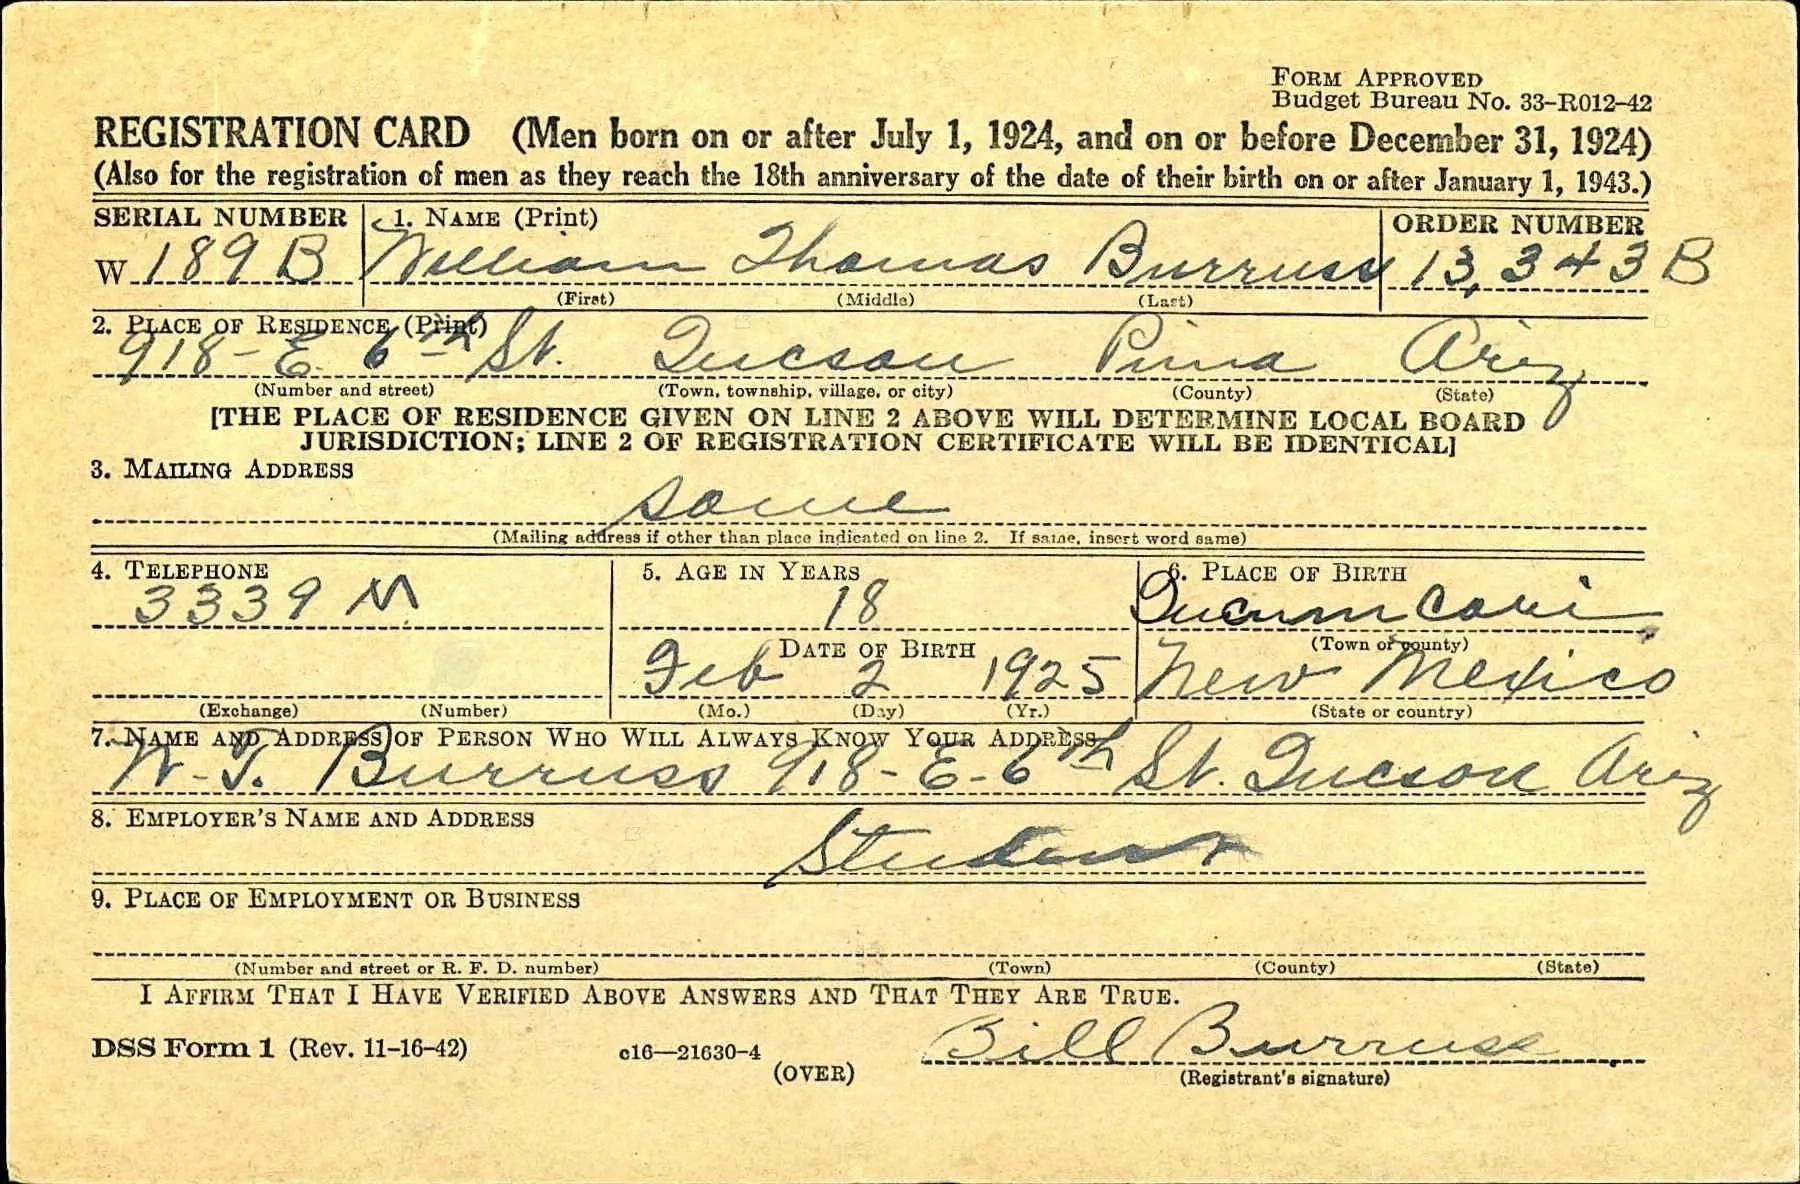 FORM APPROVED
Budget Bureau No. 33-R012-42
REGISTRATION CARD (Men born on or after July 1, 1924, and on or before December 31, 1924)
(Also for the registration of men as they reach the 18th anniversary of the date of their birth on or after January 1, 1943.)
SERIAL NUMBER 1. NAME (Print) ORDER NUMBER
W 189 B William Thomas Burruss 13,343 B
(First) (Middle) (Last)
2. PLACE OF RESIDENCE (Print)
918-E. 6th St. Tucson Pima Ariz
(Number and street) (Town, township, village, or city) (County) (State)
[THE PLACE OF RESIDENCE GIVEN ON LINE 2 ABOVE WILL DETERMINE LOCAL BOARD
JURISDICTION; LINE 2 OF REGISTRATION CERTIFICATE WILL BE IDENTICAL]
3. MAILING ADDRESS
same
(Mailing address if other than place indicated on line 2. If same, insert word same)
4. TELEPHONE 5. AGE IN YEARS 6. PLACE OF BIRTH
3339 M 18 Tucumcari
DATE OF BIRTH (Town or county)
Feb 2 1925 New Mexico
(Exchange) (Number) (Mo.) (Day) (Yr.) (State or country)
7. NAME AND ADDRESS OF PERSON WHO WILL ALWAYS KNOW YOUR ADDRESS
W-T. Burruss 918-E-6th St. Tucson Ariz
8. EMPLOYER'S NAME AND ADDRESS
Student
9. PLACE OF EMPLOYMENT OR BUSINESS
(Number and street or R. F. D. number) (Town) (County) (State)
I AFFIRM THAT I HAVE VERIFIED ABOVE ANSWERS AND THAT THEY ARE TRUE.
DSS Form 1 (Rev. 11-16-42) c16—21630-4 Bill Burruss
(OVER) (Registrant's signature)